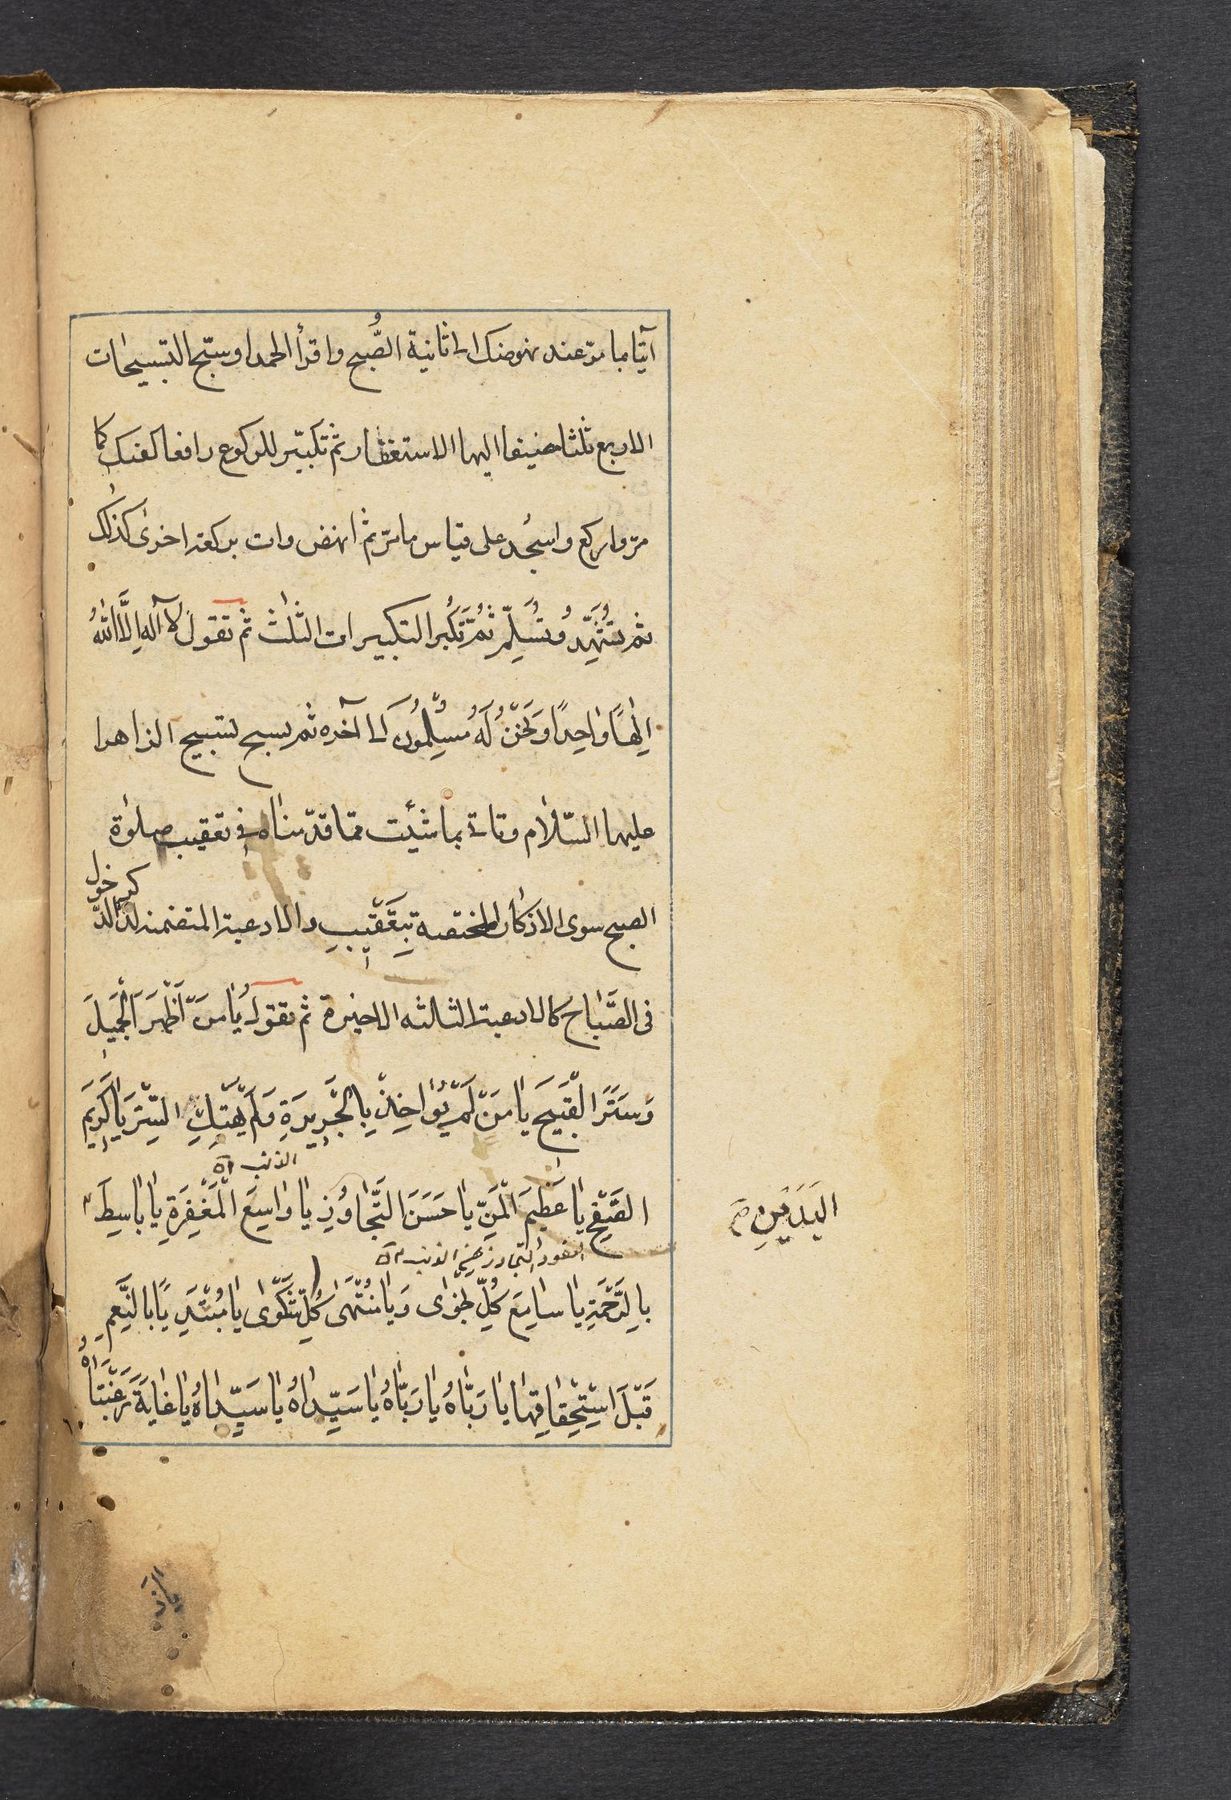 آتيا بما مرّ عند نهوضك الى ثانية الصُّبح واقرأ الحمد او سبّح التسبيحات
الاربع ثلثا مضيفا اليها الاستغفار ثم تكبّير للركوع رافعا كفيك كما
مرّ واركع واسجُد على قياس ما مرّ ثم انهض وات بركعة اخرى كذلك
ثم تتشهَّد وتُسَلِّم ثُمَّ تُكَبِّر التكبيرات الثلث ثم تقول لا اله اِلَّا اللهُ
اِلٰهًا وٰاحِدًا وَنَحْنُ لَهُ مُسْلِمُونَ الى آخره ثم يسبح تسبيح الزاهرا
عليها السّلام وتاتى بما شئت مما قدّمناه فى تعقيب صلوٰة
الصبح سوى الاذكار المختصة بِتَعْقيبِه والادعية المتضمنة لذكر الدّخول
فى الصَّبَاح كالادعية الثالثه الاخيرة ثم تقول يٰا مَنْ اَظْهَرَ الْجَميلَ
وَسَتَرَ الْقَبيحَ يٰا مَنْ لَمْ يُؤٰاخِذْ بِالْجَريرَةِ وَلَمْ يَهْتِكِ السِّتْرَ يٰا كَريمَ
الصَّفْحِ يٰا عَظيمَ الْمَنِّ يٰا حَسَنَ التَّجٰاوُزِ يٰا وٰاسِعَ الْمَغْفِرَةِ يٰا بٰاسِطَ
الذنب
اليَدَيْنِ صح
العفو والتجاوز الذنب
بِالرَّحْمَةِ يٰا سٰامِعَ كُلِّ نَجْوٰى وَيٰا مُنْتَهٰى كُلِّ شَكْوٰى يٰا مُبْتَدِيًا بِالنِّعَمِ
قَبْلَ اسْتِحْقٰاقِهٰا يٰا رَبّٰاهُ يٰا رَبّٰاهُ يٰا سَيِّدٰاهُ يٰا سَيِّدٰاهُ يٰا غٰايَةَ رَغْبَتٰاهُ